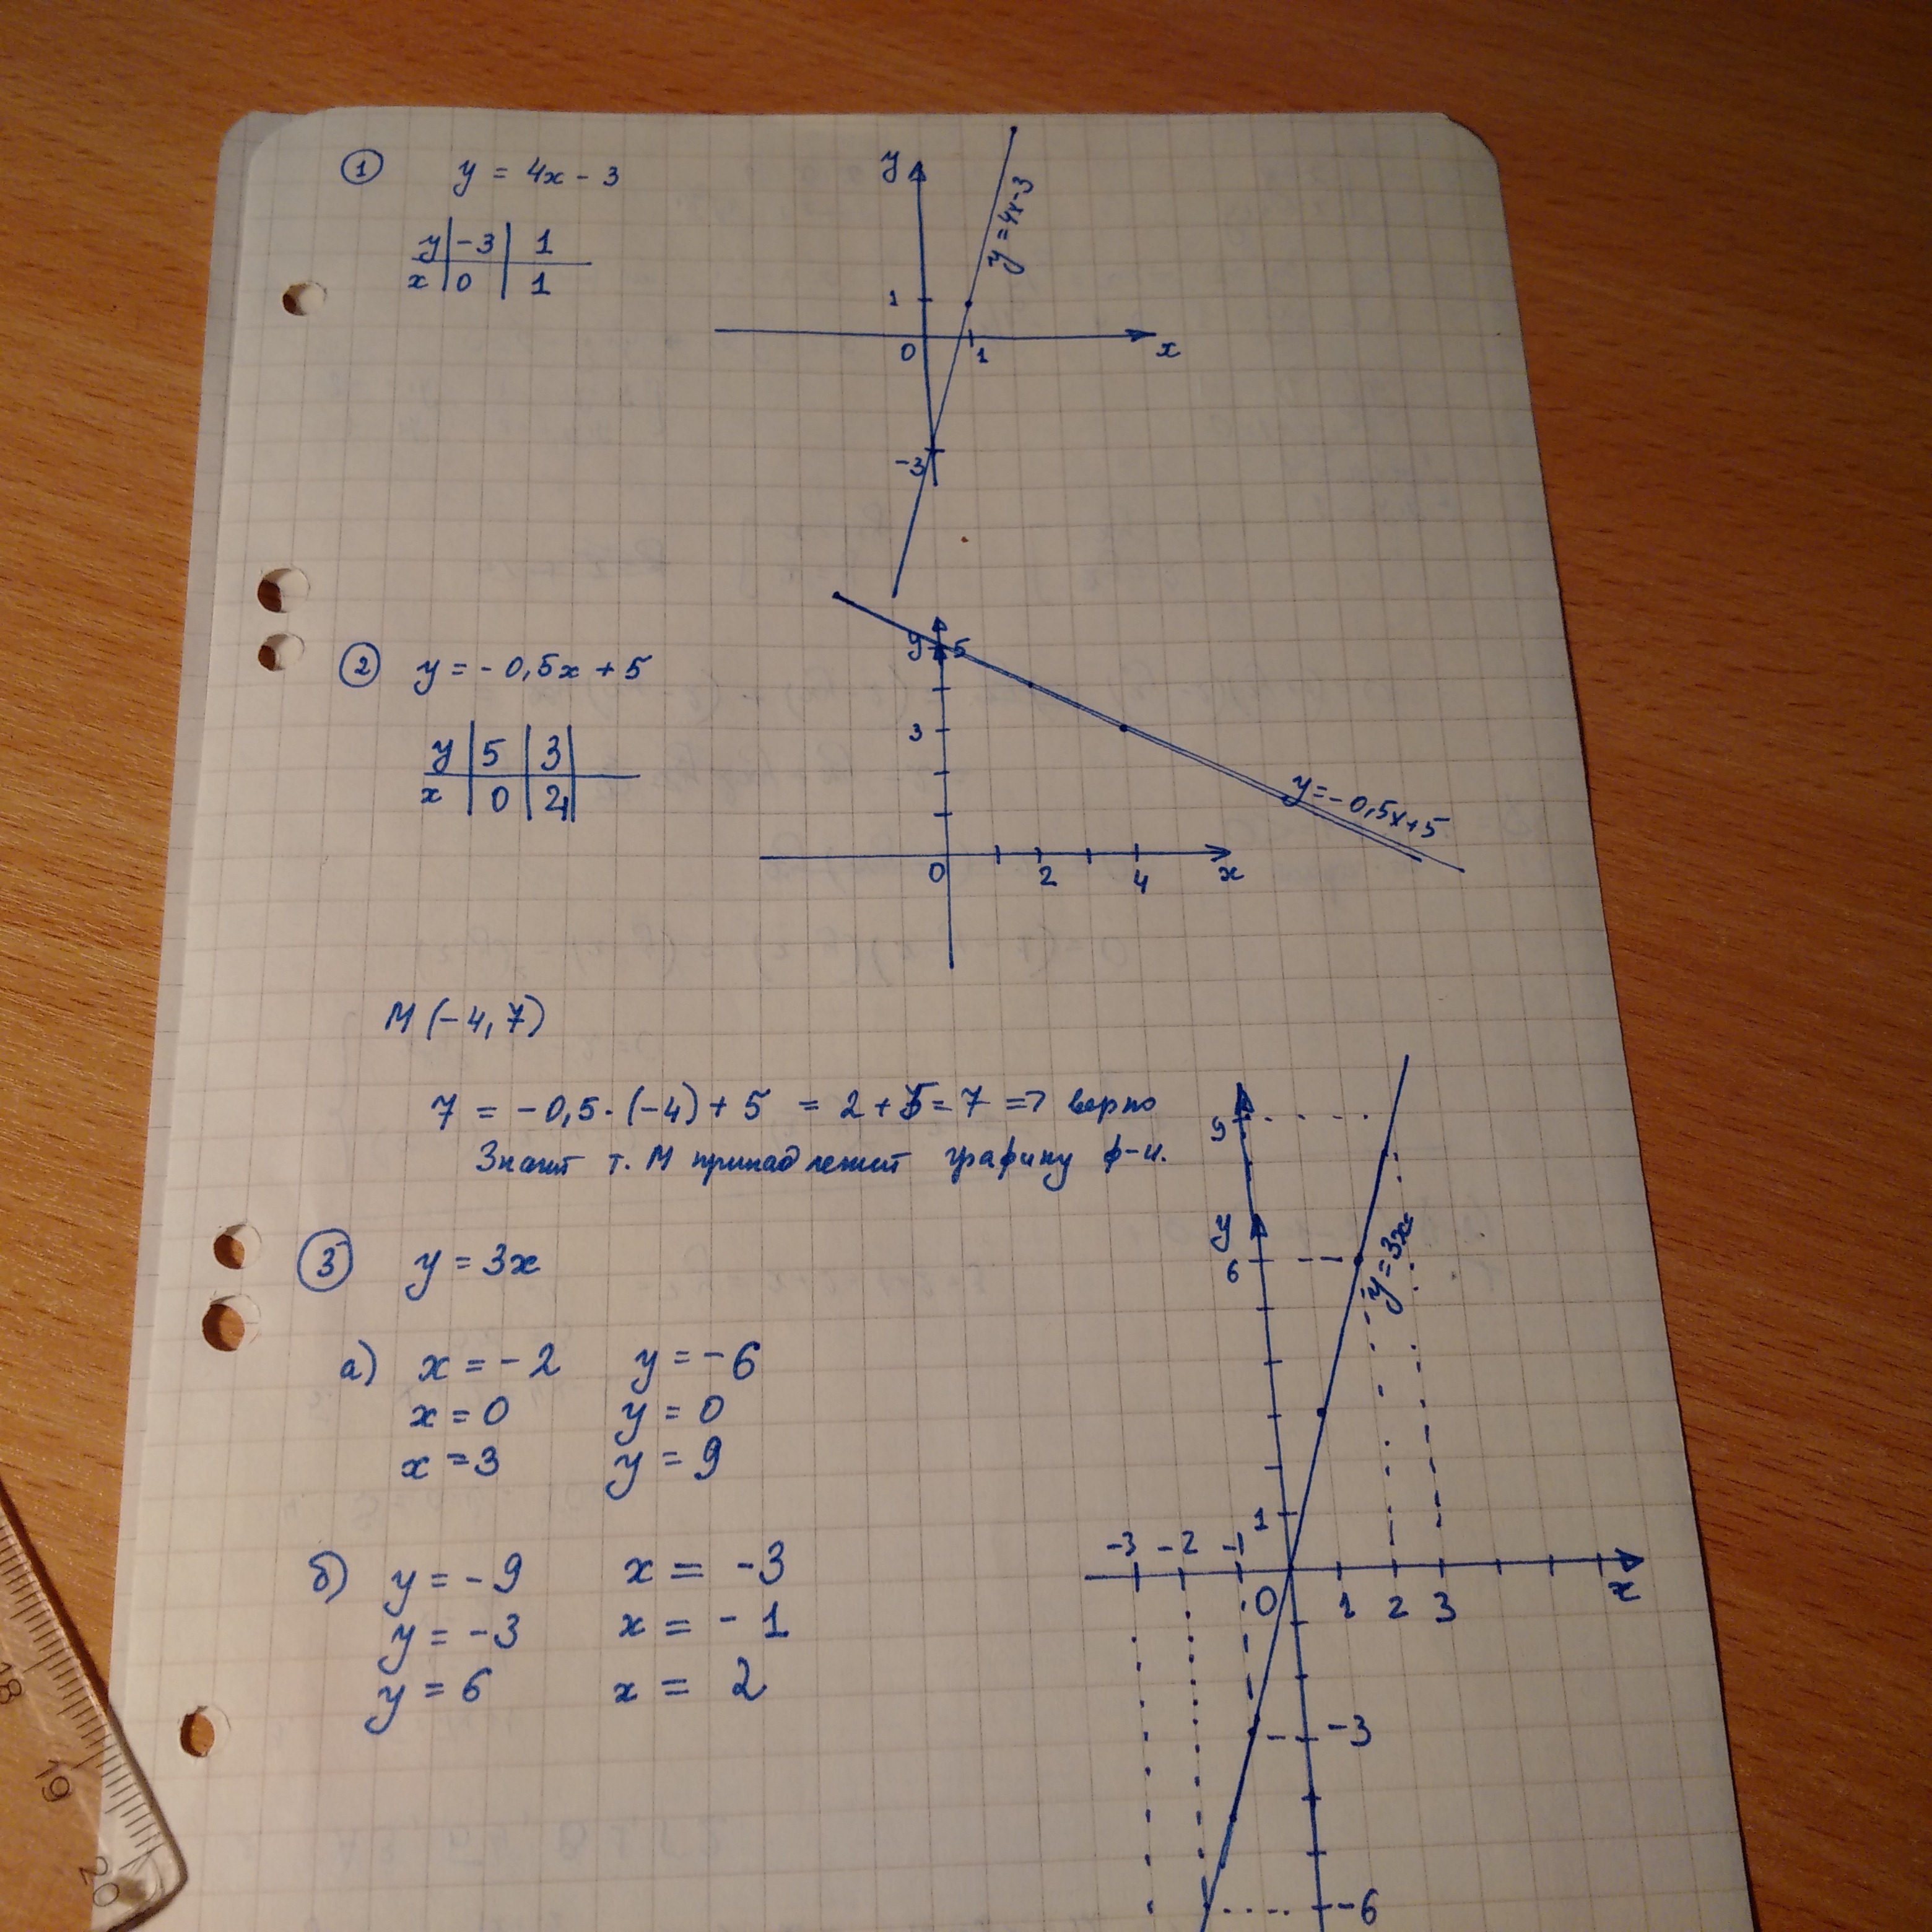 1 y = 4x - 3
y -3 1
x 0 1
y
y = 4x-3
1
0 1 x
-3
2 y = - 0,5x + 5
y 5 3
x 0 4
y 5
3
y = -0,5x+5
0 2 4 x
M (-4, 7)
7 = -0,5 · (-4) + 5 = 2 + 5 = 7 => верно
Значит т. M принадлежит графику ф-и.
3 y = 3x
а) x = -2 y = -6
x = 0 y = 0
x = 3 y = 9
б) y = -9 x = -3
y = -3 x = -1
y = 6 x = 2
9
y
6
y = 3x
1
-3 -2 -1
0 1 2 3 x
-3
-6
18
19
20